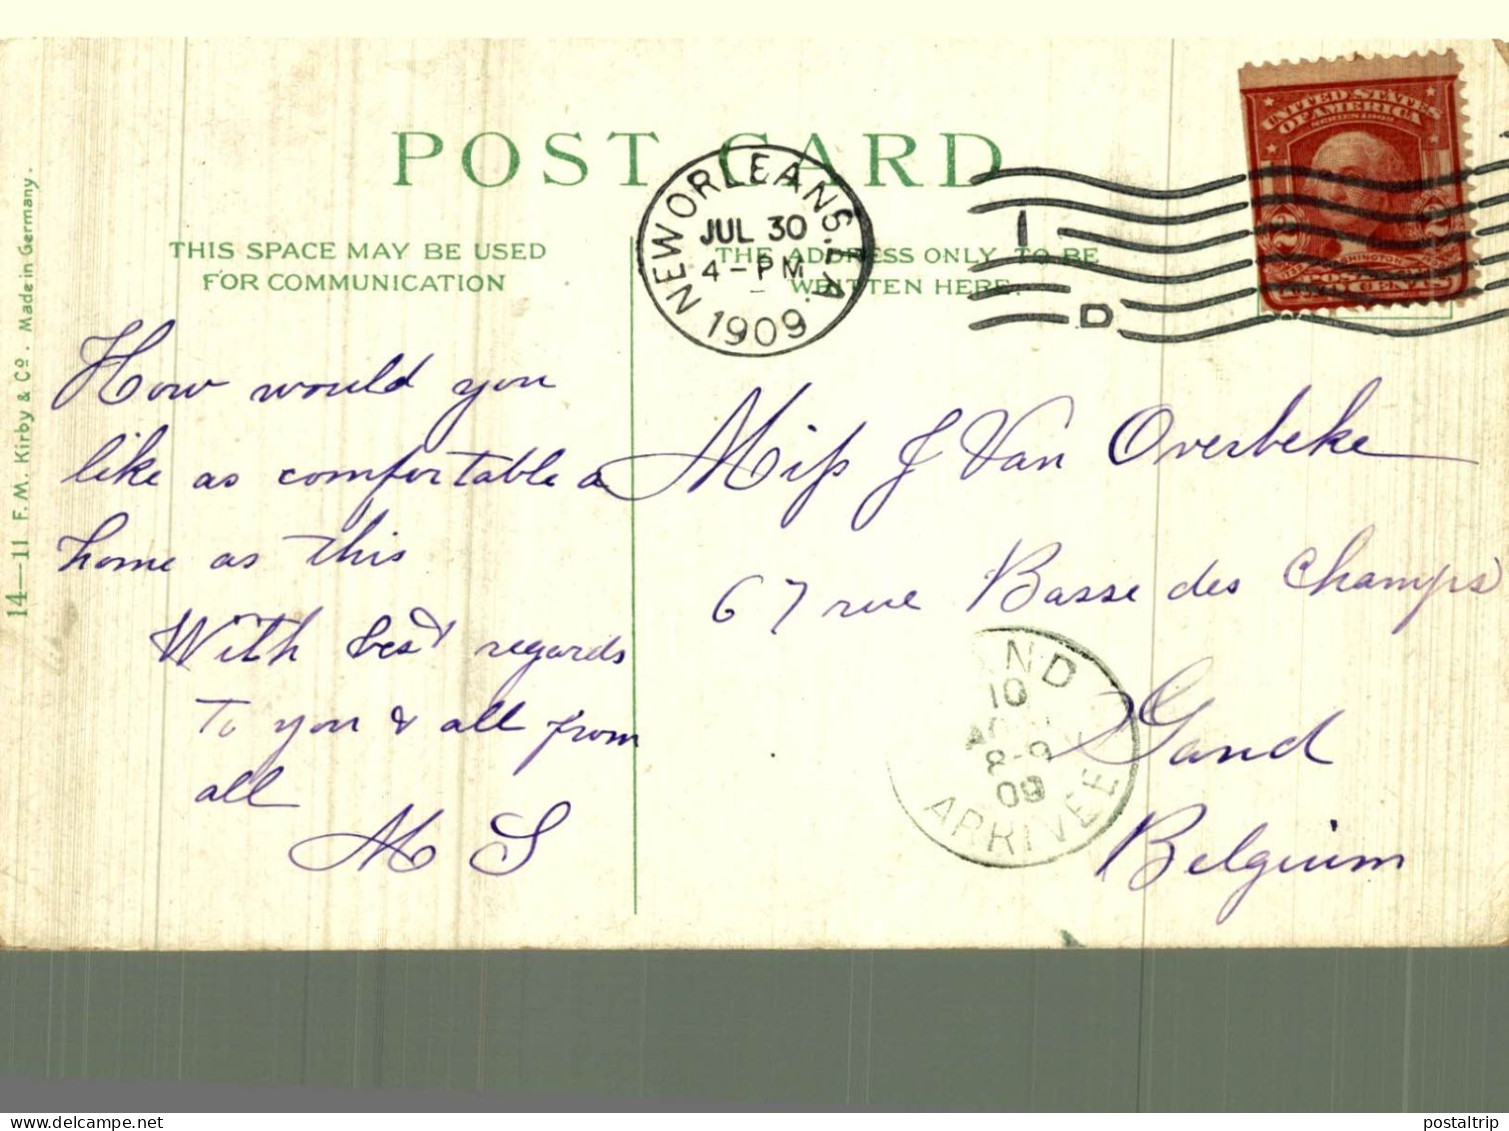 POST CARD
THIS SPACE MAY BE USED
FOR COMMUNICATION
THE ADDRESS ONLY TO BE
WRITTEN HERE.
NEW ORLEANS, LA.
JUL 30
4-PM
1909
1
D
UNITED STATES
OF AMERICA
SERIES 1902
2 2
WASHINGTON
TWO CENTS
14—11 F. M. Kirby & Co. Made in Germany.
How would you
like as comfortable a
home as this
With best regards
To you & all from
all
M S
Miss J Van Overbeke
67 rue Basse des Champs
Gand
Belgium
GAND
10
8-9
09
ARRIVEE
www.delcampe.net
postaltrip